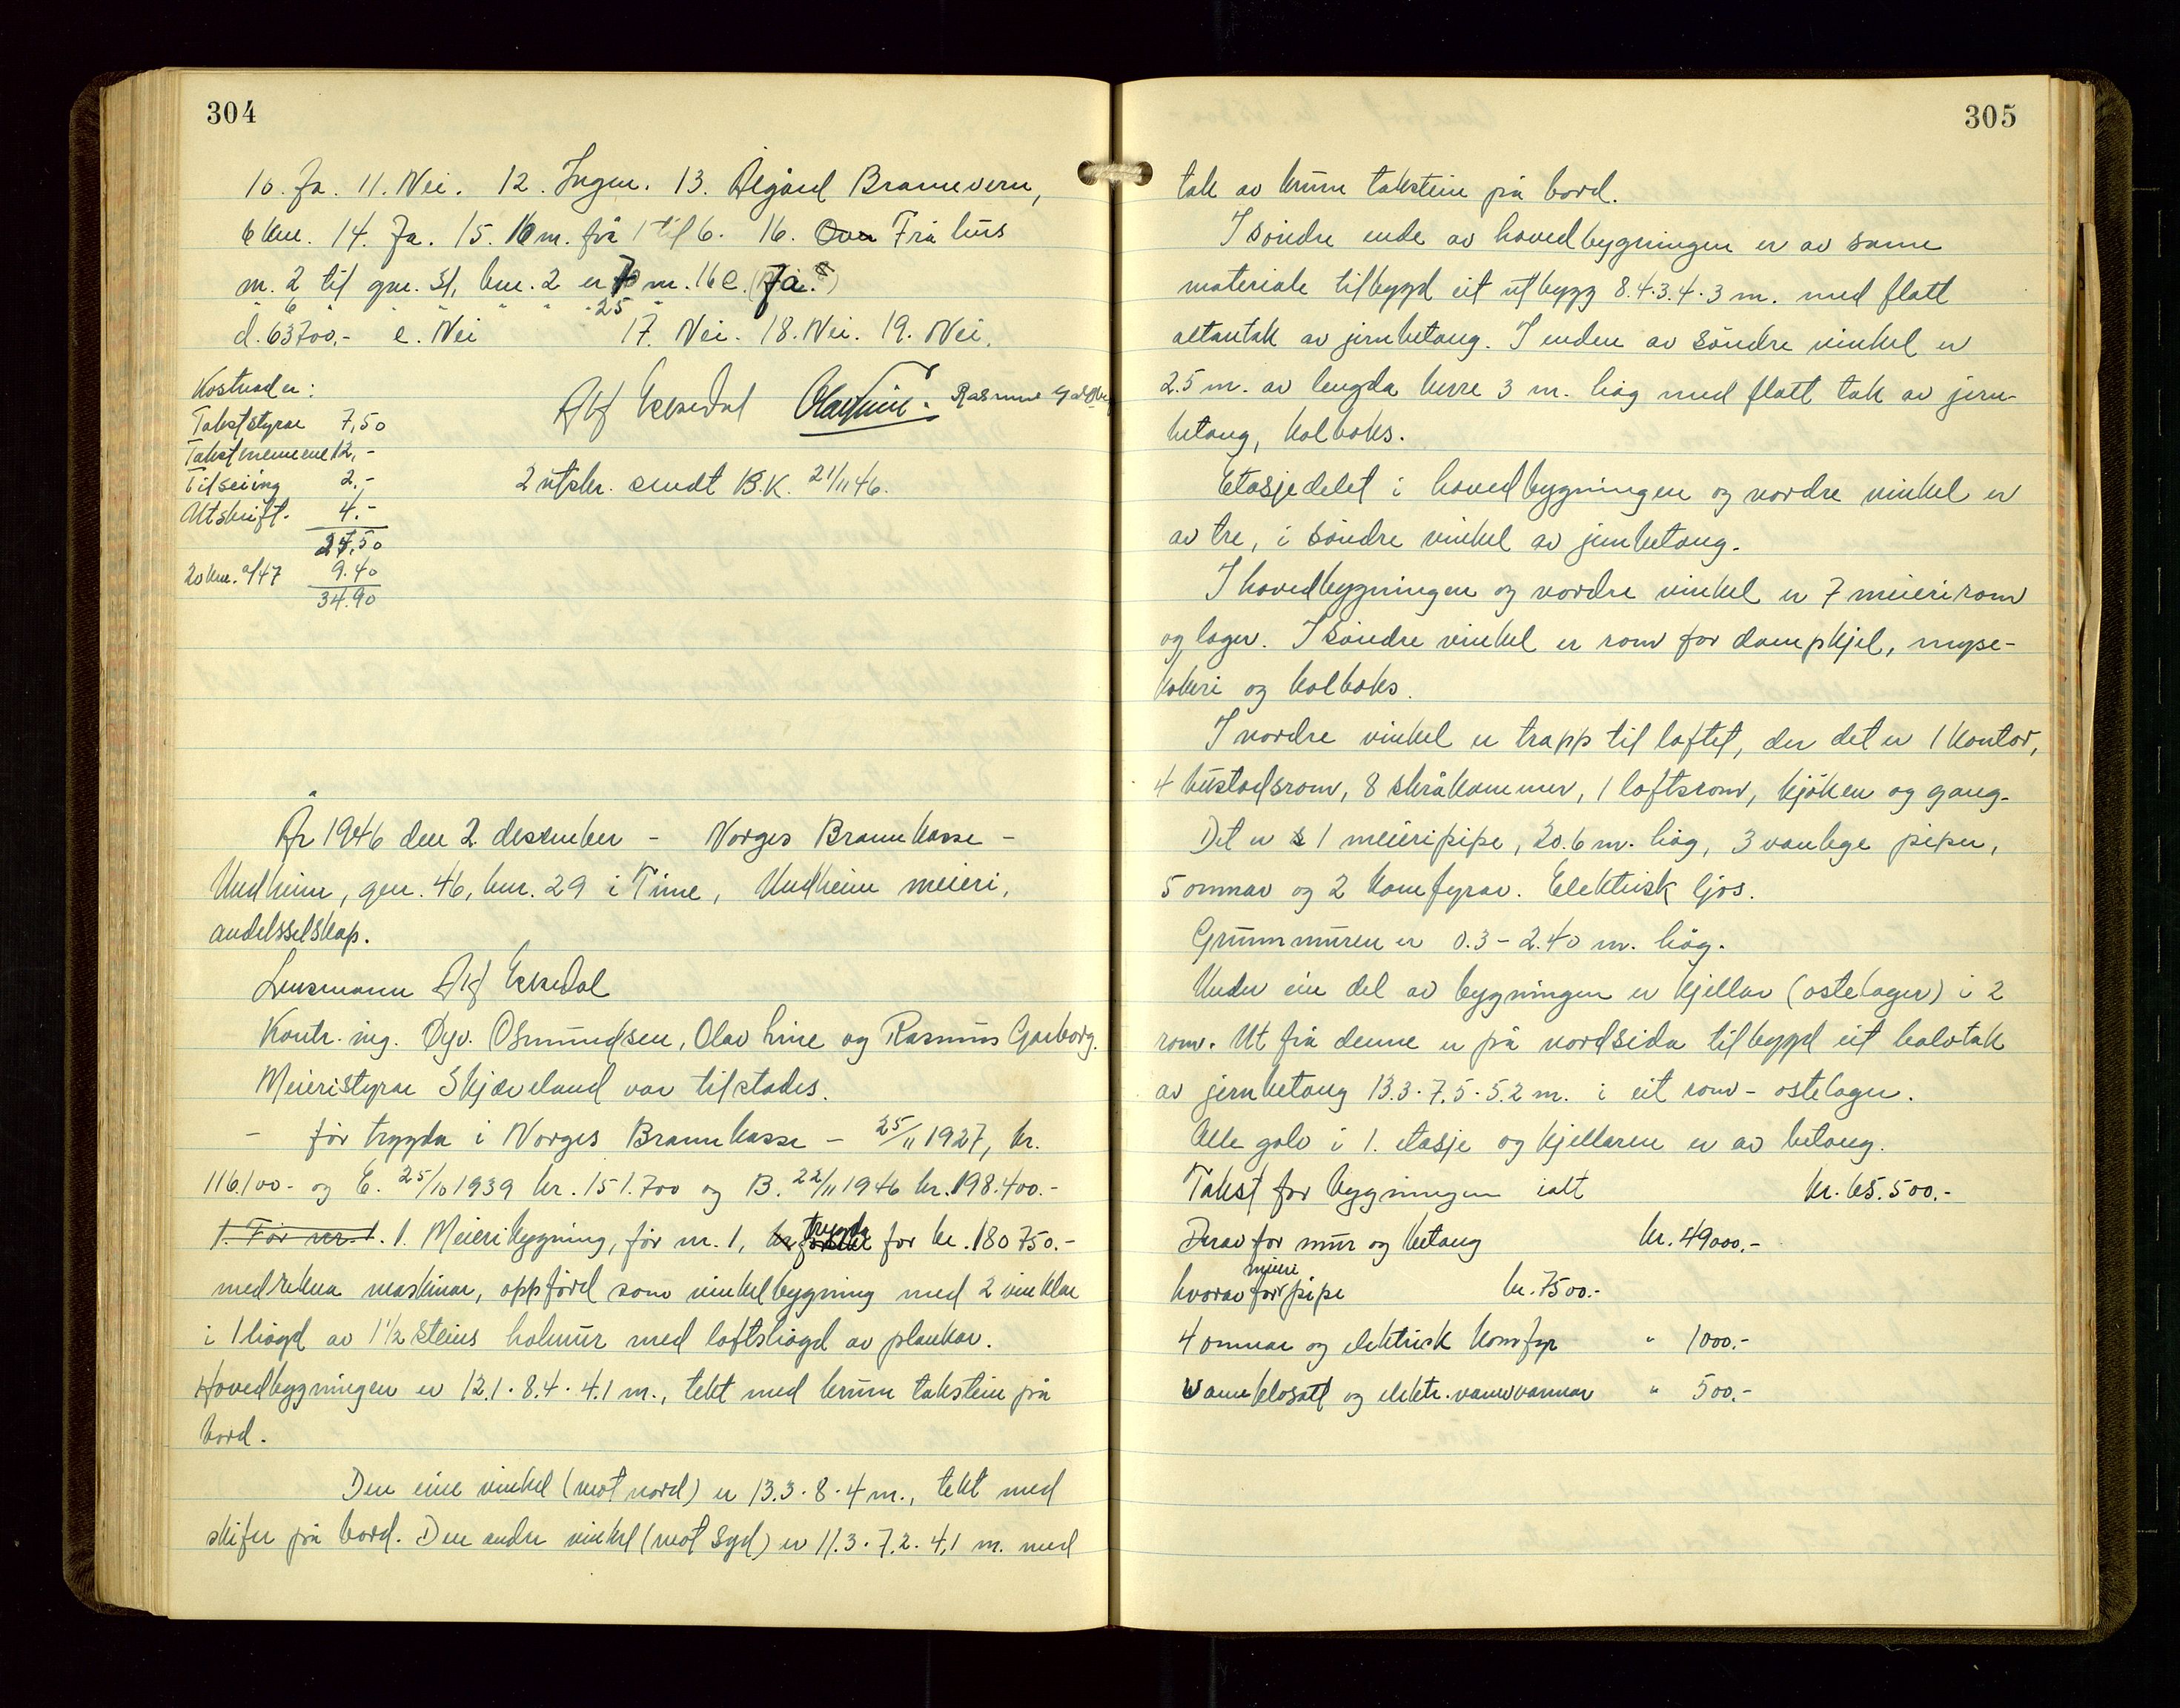 304
10. Ja. 11. Nei. 12. Ingen. 13. Ålgård Brannvern,
6 km. 14. Ja. 15. 16 m. frå 1 til 6. 16. Frå hus
nr. 2 til gnr. 31, bnr. 2 er m. 16 c. (Ja.)
" 6 " " " " " 25 "
d. 63700,- e. Nei 17. Nei. 18. Nei. 19. Nei.
Kostnader:
Takststyrar 7,50
Takstmennene 12,-
Tilseiing 2,-
Utskrift. 4.-
25,50
20 km. 9.40
34.90
Alf Eksedal Olav Line. Rasmus Garborg
2 utskr. sendt B.K. 21/11 46.
År 1946 den 2. desember - Norges Brannkasse -
Undheim, gnr. 46, bnr. 29 i Time, Undheim meieri,
andelsselskap.
Lensmann Alf Eksedal
Kontr. ing. Osmundsen, Olav Line og Rasmus Garborg.
Meieristyrar Skjæveland var tilstades.
- før trygda i Norges Brannkasse - 25/11 1927, kr.
116.100- og E. 25/10 1939 kr. 151.700 og B. 22/11 1946 kr. 198.400.-
1. Før nr. 1. 1. Meieribygning, før nr. 1, trygda for kr. 180 750.-
medrekna maskinar, oppførd som vinkelbygning med 2 vinklar
i 1 høgd av 1 1/2 steins holmur med loftshøgd av plankar.
Hovedbygningen er 12.1 · 8.4 · 4.1 m., tekt med krum takstein på
bord.
Den eine vinkel (mot nord) er 13.3 · 8 · 4 m., tekt med
skifer på bord. Den andre vinkel (mot syd) er 11.3 · 7.2 · 4,1 m. med
305
tak av krum takstein på bord.
I søndre ende av hovedbygningen er av same
materiale tilbygd eit utbygg 8.4 · 3.4 · 3 m. med flatt
altantak av jernbetong. I enden av søndre vinkel er
2.5 m. av lengda berre 3 m. høg med flatt tak av jern-
betong, kolboks.
Etasjedelet i hovedbygningen og nordre vinkel er
av tre, i søndre vinkel av jernbetong.
I hovedbygningen og nordre vinkel er 7 meierirom
og lager. I søndre vinkel er rom for dampkjel, myse-
kokeri og kolboks.
I nordre vinkel er trapp til loftet, der det er 1 kontor,
4 bustadsrom, 8 skråkammer, 1 loftsrom, kjøken og gang.
Det er 1 meieripipe, 20.6 m. høg, 3 vanlege piper,
5 omnar og 2 komfyrar. Elektrisk ljos.
Grunnmuren er 0.3 - 2.40 m. høg.
Under ein del av bygningen er kjellar (ostelager) i 2
rom. Ut frå denne er på nordsida tilbygd eit halvtak
av jernbetong 13.3 · 7.5 · 5.2 m. i eit rom - ostelager.
Alle golv i 1. etasje og kjellaren er av betong.
Takst for bygningen ialt kr. 65.500.-
Derav for mur og betong kr. 49000.-
hvorav for meieripipe kr. 7500.-
4 omnar og elektrisk komfyr " 1000.-
Vannklosett og elektr. varmvannar " 500.-